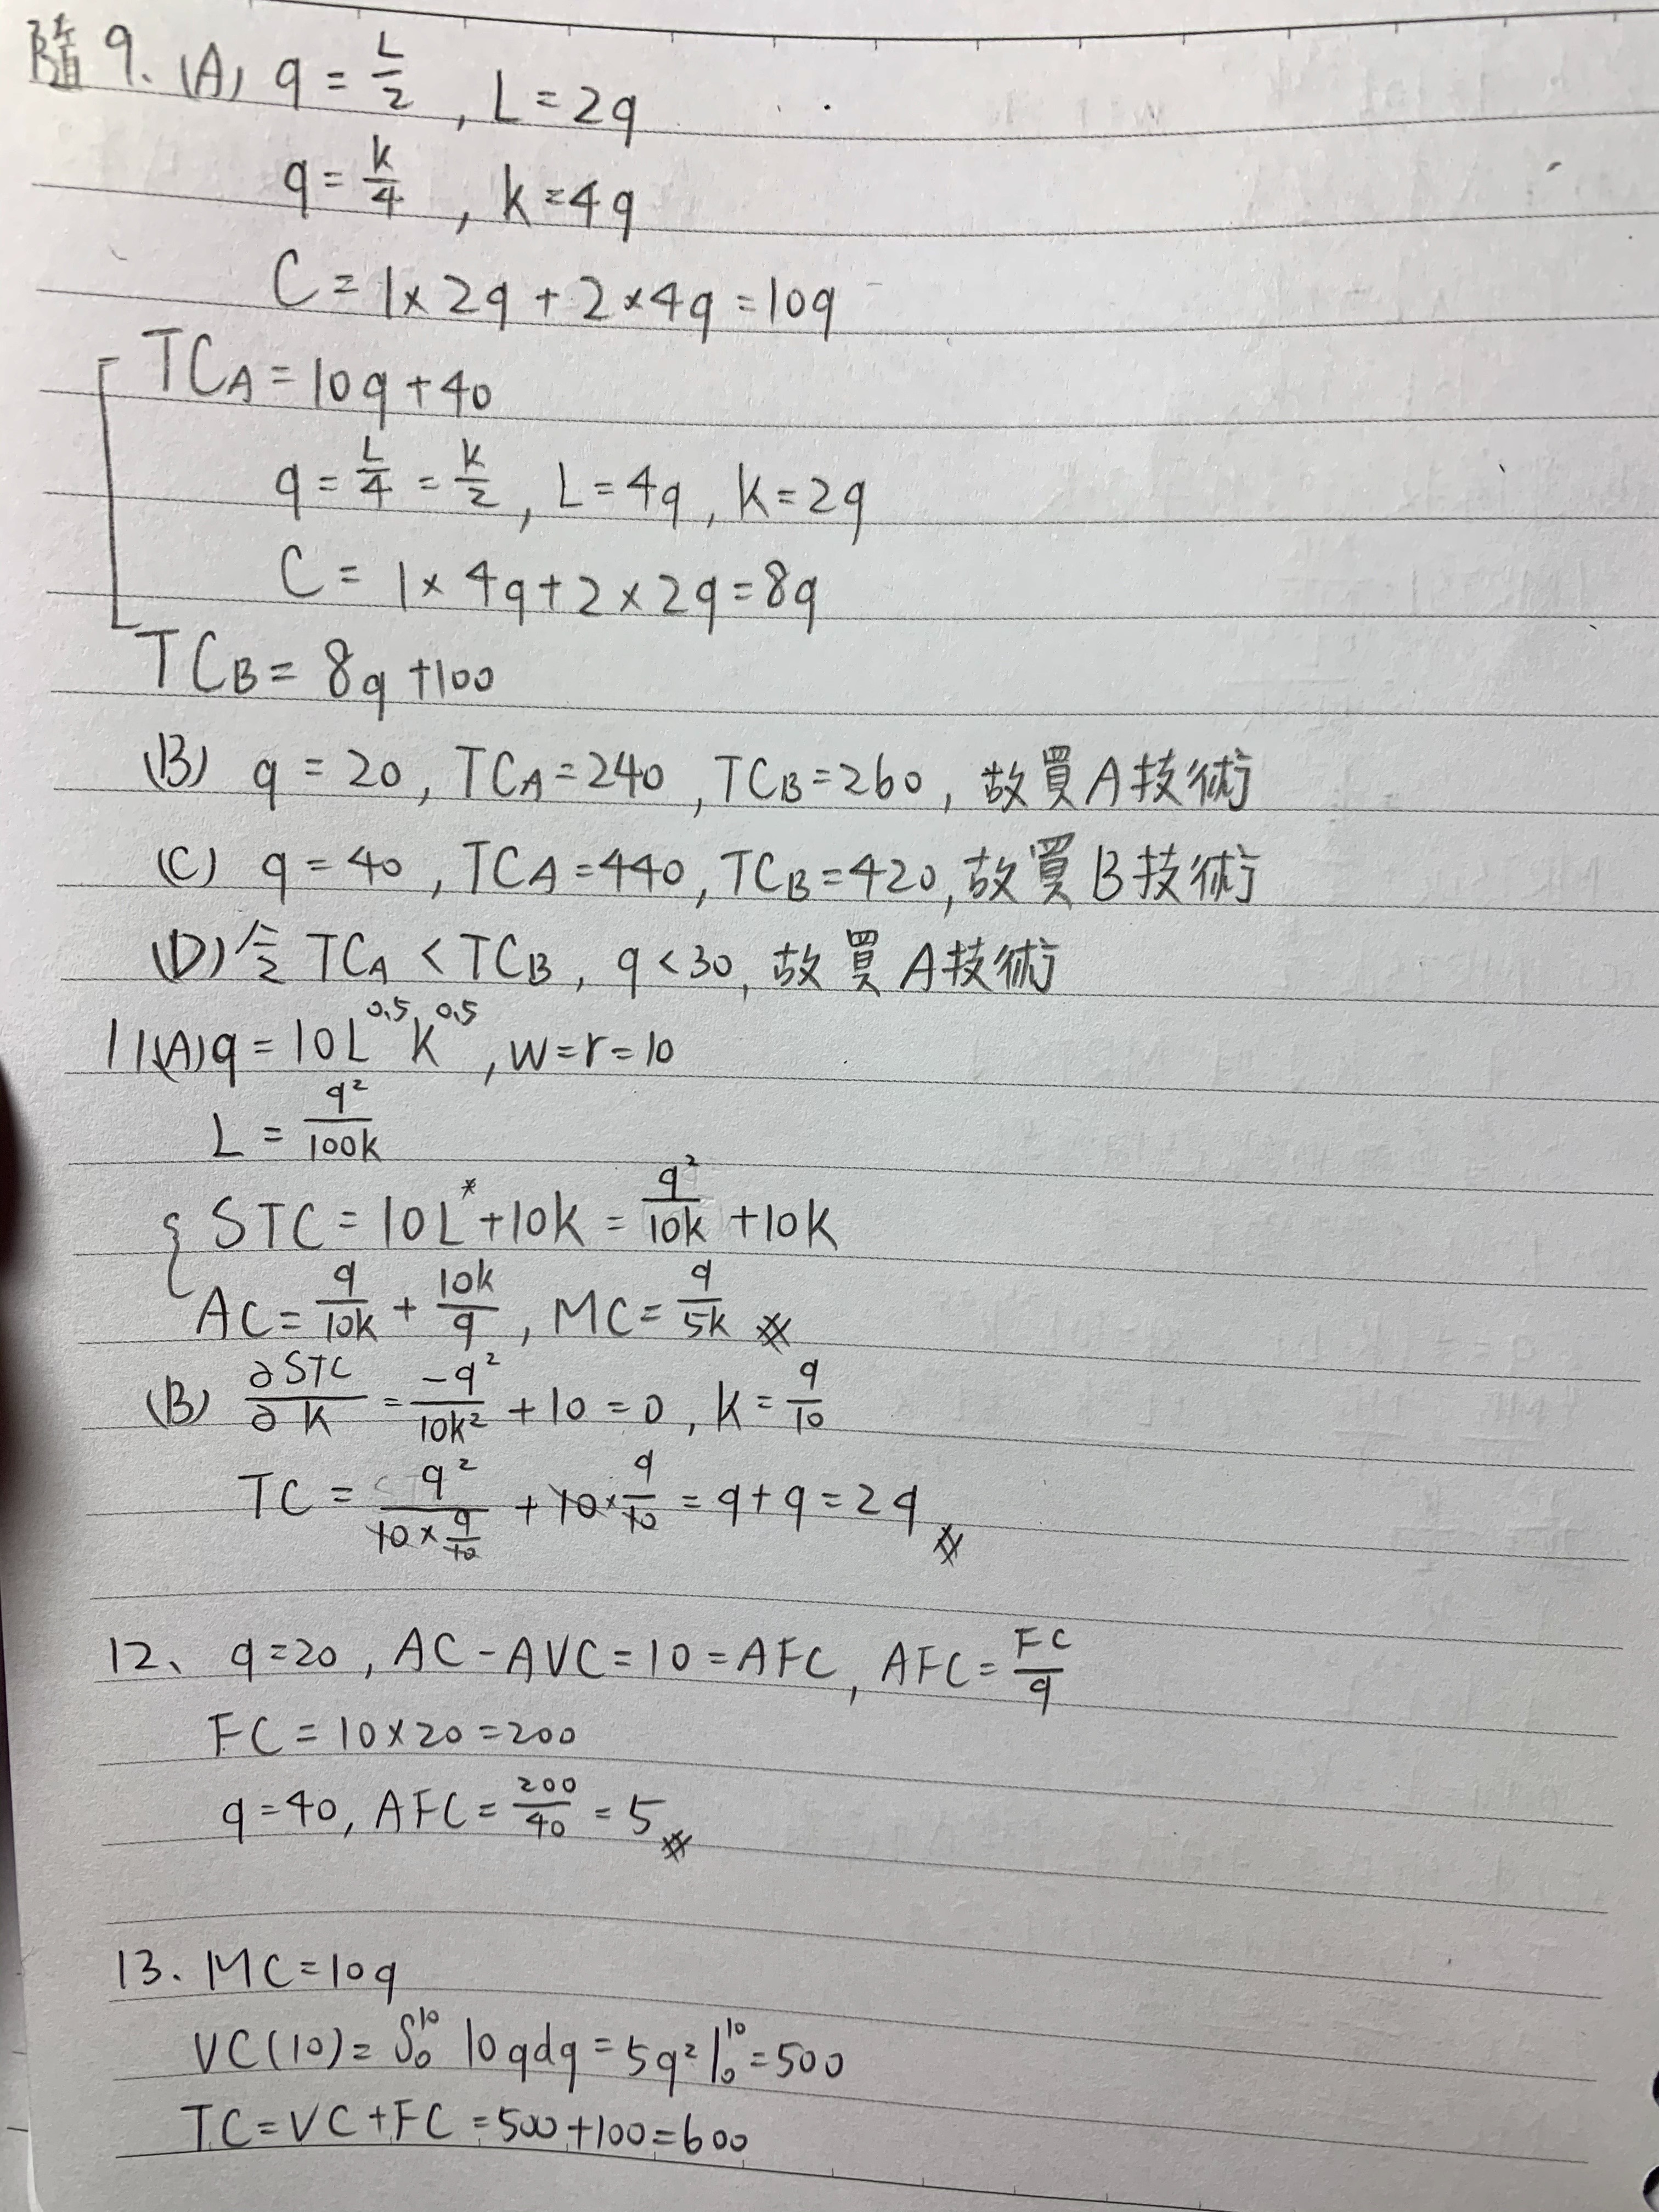 隨9. (A) q = L/2 , L = 2q
q = k/4 , k = 4q
C = 1×2q + 2×4q = 10q
TCA = 10q + 40
q = L/4 = k/2 , L = 4q , k = 2q
C = 1×4q + 2×2q = 8q
TCB = 8q + 100
(B) q = 20 , TCA = 240 , TCB = 260 , 故買A技術
(C) q = 40 , TCA = 440 , TCB = 420 , 故買B技術
(D) 令 TCA < TCB , q < 30 , 故買A技術
11.(A) q = 10L^0.5 K^0.5 , w = r = 10
L = q²/100k
STC = 10L* + 10k = q²/10k + 10k
AC = q/10k + 10k/q , MC = q/5k
(B) ∂STC/∂k = -q²/10k² + 10 = 0 , k = q/10
TC = q²/(10×q/10) + 10×q/10 = q + q = 2q
12、 q = 20 , AC - AVC = 10 = AFC , AFC = FC/q
FC = 10×20 = 200
q = 40 , AFC = 200/40 = 5
13. MC = 10q
VC(10) = ∫₀¹⁰ 10qdq = 5q²|₀¹⁰ = 500
TC = VC + FC = 500 + 100 = 600